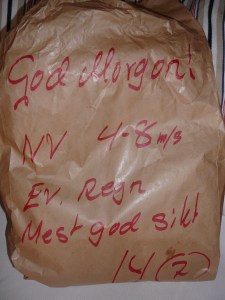 God Morgon!
NV 4-8 m/s
Ev. Regn
Mest god sikt
14 (7)